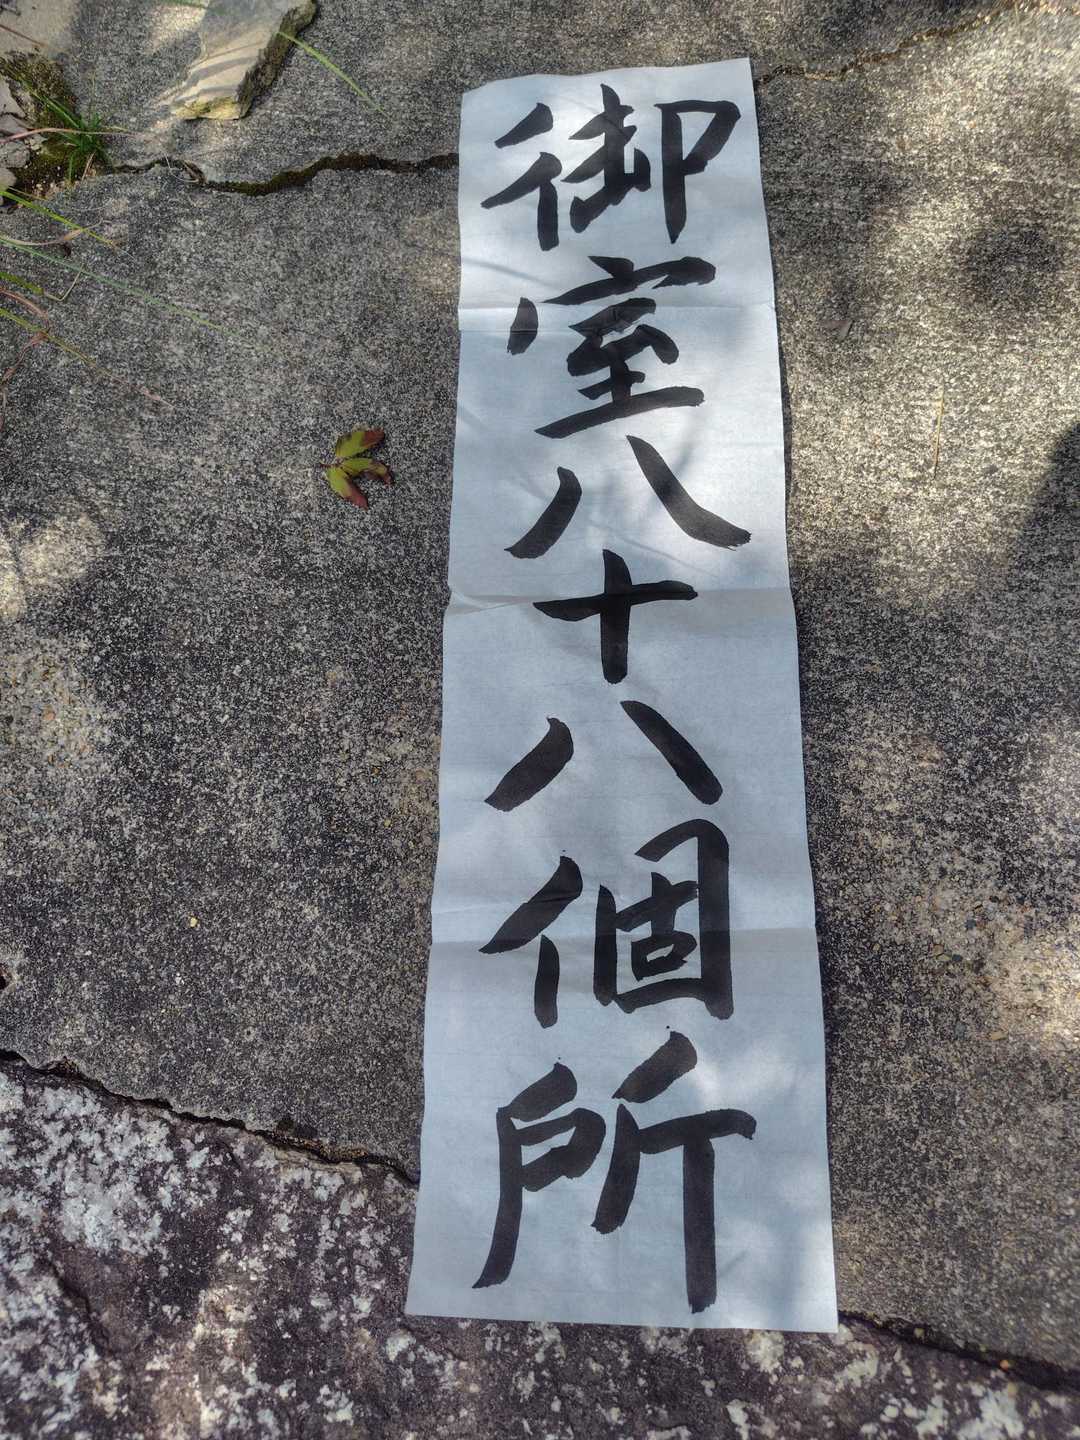 御室八十八個所